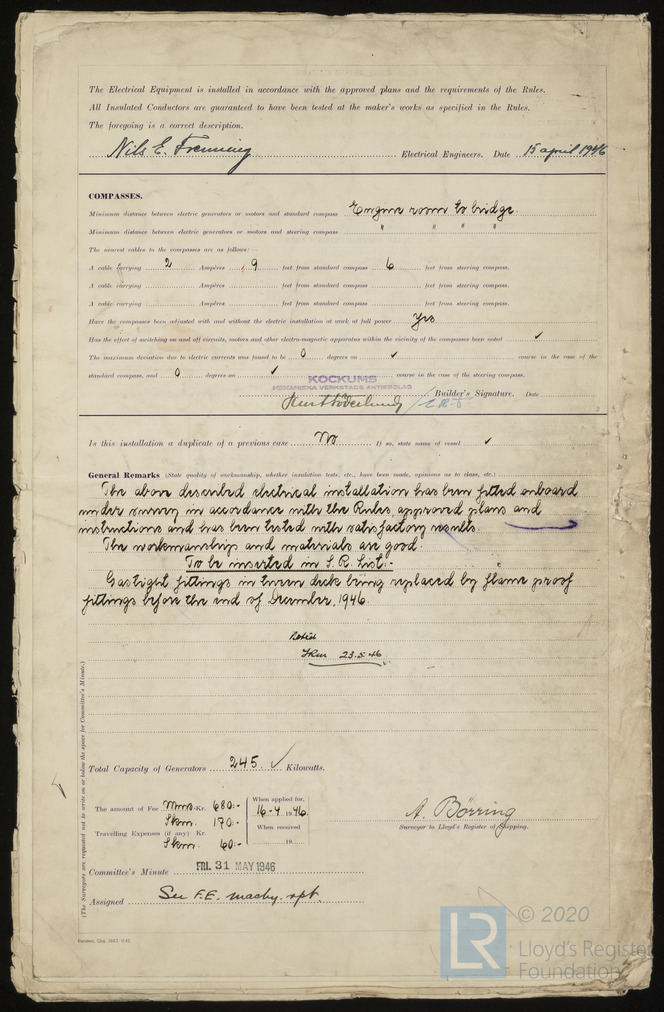 The Electrical Equipment is installed in accordance with the approved plans and the requirements of the Rules.
All Insulated Conductors are guaranteed to have been tested at the maker's works as specified in the Rules.
The foregoing is a correct description.
Nils E. Electrical Engineers. Date 15 april 1946
COMPASSES.
Minimum distance between electric generators or motors and standard compass Engine room to bridge.
Minimum distance between electric generators or motors and steering compass " " " "
The nearest cables to the compasses are as follows:—
A cable carrying 2 Ampères 9 feet from standard compass 6 feet from steering compass.
A cable carrying Ampères feet from standard compass feet from steering compass.
A cable carrying Ampères feet from standard compass feet from steering compass.
Have the compasses been adjusted with and without the electric installation at work at full power Yes
Has the effect of switching on and off circuits, motors and other electro-magnetic apparatus within the vicinity of the compasses been noted ✓
The maximum deviation due to electric currents was found to be 0 degrees on ✓ course in the case of the
standard compass, and 0 degrees on ✓ course in the case of the steering compass.
KOCKUMS
MEKANISKA VERKSTADS AKTIEBOLAG
Builder's Signature. Date
Is this installation a duplicate of a previous case No If so, state name of vessel ✓
General Remarks (State quality of workmanship, whether insulation tests, etc., have been made, opinions as to class, etc.)
The above described electrical installation has been fitted onboard
under survey in accordance with the Rules, approved plans and
instructions and has been tested with satisfactory results.
The workmanship and materials are good.
To be inserted in S. R. List:-
Gastight fittings in tween decks being replaced by flame proof
fittings before the end of December, 1946.
Noted
23.5.46
(The Surveyors are requested not to write on or below the space for Committee's Minute.)
Total Capacity of Generators 245. ✓ Kilowatts.
The amount of Fee Kr. 680:-
170:-
Travelling Expenses (if any) Kr.
60:-
When applied for,
16-4 1946.
When received
19
A. Börring
Surveyor to Lloyd's Register of Shipping.
Committee's Minute FRI. 31 MAY 1946
Assigned See F.E. machy. rpt.
LR
© 2020
Lloyd's Register
Foundation